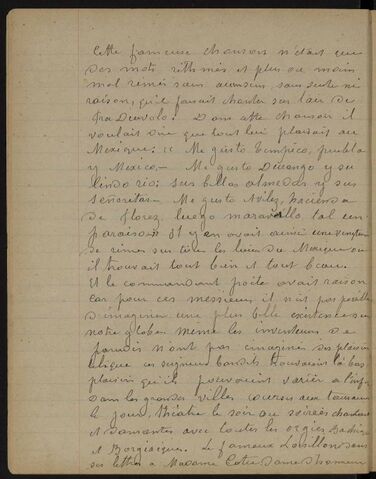 Cette fameuse chanson n'était que
des mots rithmés et plus ou moins
mal rimés sans aucun sens sans suite ni
raison, qu'il faisait chanter sur l'air de
Fra Diavolo. Dans cette chanson il
voulait dire que tout lui plaisait au
Mexique: "Me gusto Tampico, puebla
y Mexico — Me gusto Durango y su
lindo rio; sus bellas almedas y sus
señoretas — Me gusto Aviles, hacienda
de Florez, luego maravilla tal un
paraiso" Il y en avait ainsi une vingtaine
de rimes sur tous les lieux du Mexique où
il trouvait tout bien et tout beau.
Et le commandant poète avait raison
car pour ces messieurs il n'est pas possible
d'imaginer une plus belle existence sur
notre globe. Même les inventeurs de
paradis n'ont pas imaginé des plaisirs
ces seigneurs bandits trouvaient là bas
plaisirs qu'ils pouvaient varier à l'infini
dans les grandes villes courses aux taureaux
le jour, théâtre le soir ou soirées chantantes
et dansantes avec toutes les orgies
et Borgiaques. Le fameux dans
ses lettres à Madame